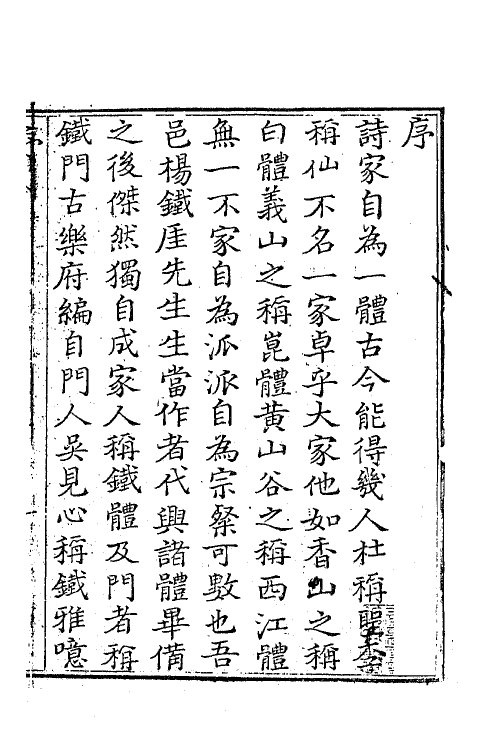 序
詩家自為一體古今能得幾人杜稱聖李
稱仙不名一家卓乎大家他如香山之稱
白體義山之稱崑體黃山谷之稱西江體
無一不家自為派派自為宗粲可數也吾
邑楊鐵厓先生生當作者代興諸體畢備
之後傑然獨自成家人稱鐵體及門者稱
鐵門古樂府編自門人吳見心稱鐵雅噫